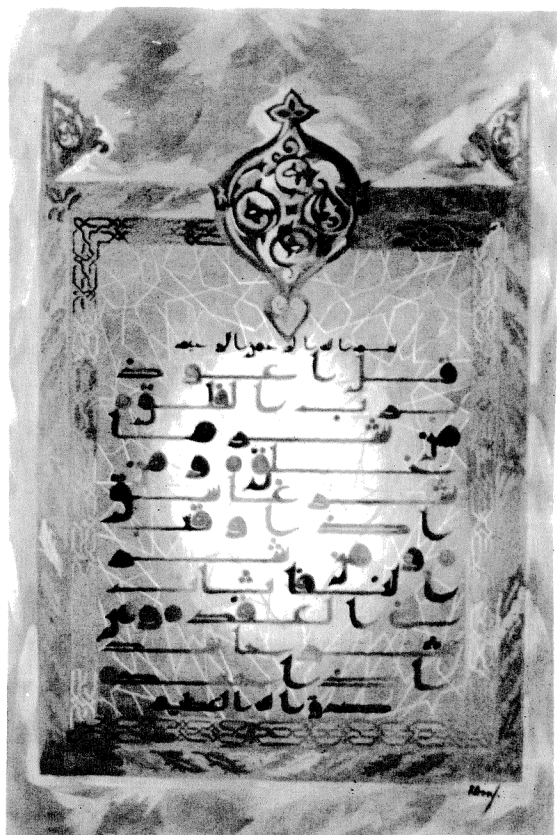 بسم الله الرحمن الرحيم
قل اعوذ
برب الفلق
من شر ما
خلق و من
شر غاسق
اذا وقب
و من شر
النفاثات
في العقد و من
شر حاسد
اذا حسد
صدق الله العظيم